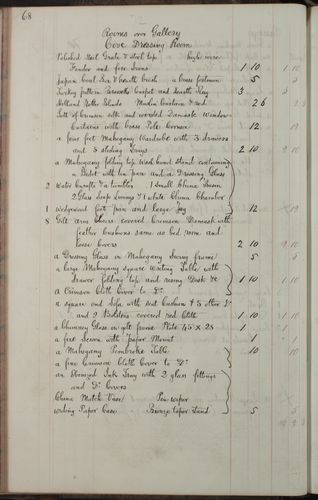 68
Rooms over Gallery
Cove Dressing Room
Polished Steel Grate & steel top high wire
Fender and fire Irons 1 10
Japan Coal Box & hearth brush a brass footman 5
Turkey pattern Brussels Carpet and hearth Rug 3
Holland Roller Blinds Muslin Curtains & rod 2 6
Sett of Crimson silk and worsted Damask Window
Curtains with brass Pole Cornice 12
a four feet Mahogany Wardrobe with 3 drawers
and 3 sliding trays 2 10
a Mahogany folding top Wash hand stand containing
a Bidet with tin pan and a Dressing Glass
2 Water Crofts & a tumbler 1 Small China Basin
2 Glass Soap 1 white China Chamber
1 Wedgewood Foot pan and large Jug 12
8 Gilt arm Chairs covered Crimson Damask with
feather Cushions same as bed room and
loose Covers 2 10
a Dressing Glass in Mahogany Swing frame 5
a large Mahogany square Writing Table with
drawer folding top and rising Desk &c 1 10
a Crimson Cloth Cover to Do
a square end Sofa with seat Cushion & 5 other Do
and 2 Bolsters covered red Cloth 1 10
a Chimney Glass in gilt frame Plate 45 x 28 1
a fire Screen with paper Mount 1
a Mahogany Pembroke Table 10
a fine Crimson Cloth Cover to Do
an Ebonized Ink Tray with 2 glass fittings
and Do Covers
China Match Vase Pen wiper
writing Paper Case Bronze taper Stand 5